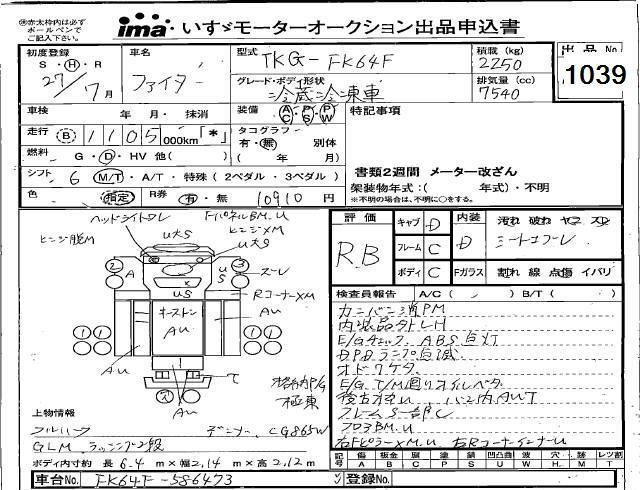 ※赤太枠内は必ず
ボールペンで
ご記入下さい。
ima いすゞモーターオークション出品申込書
初度登録 車名 型式 TKG-FK64F 積載 (kg) 2250 出品No
S・H・R 27/7月 ファイター グレード・ボディ形状 冷蔵冷凍車 排気量 (cc) 7540 1039
車検 年 月・ 抹消 装備 A/C P/S P/W 特記事項
走行 B 1105 000km「*」 タコグラフ
有・無 別体
燃料 G・D・HV 他( ) ( 年 月)
書類2週間 メーター改ざん
シフト 6 M/T・A/T・特殊(2ペダル・3ペダル)
架装物年式:( 年式)・不明
※不明の場合は、不明に○をする。
色 指定 R券 有・無 10910円
評価 キャブ D 内装 汚れ 破れ ヤコゲ スレ
RB フレーム C D シートコゲ、レ
ボディ C Fガラス 割れ 線 点傷 イバリ
ヘッドライトクレ FパネルBM.U
ヒンジ脱M U大S ヒンジXM
U大S
2 A U S 3 スーレ
US RコーナーXM
キーストン
AU AU
1 1 1 1
AU
T
AU
格納P/G
極東
検査員報告 A/C ( )B/T( )
カンバン消PM
E/Gチェック、ABS点灯
DPDランプ点滅
オドワケタ
E/G.T/M廻りオイルベタ
フレームS一部C
フロアBM.U
右FピラーXM.U 右RコーナーインナーU
上物情報
デンソー CG865W
GLM ラッシング2段
ボディ内寸約 長 6.4 m×幅 2.14 m×高 2.12 m
記号 傷 A 板金 B 腐 C 塗 P 錆 S 凹凸曲 U 波 W 穴 H 跡 M レンズ割 T
車台No. FK64F-586473 登録No.